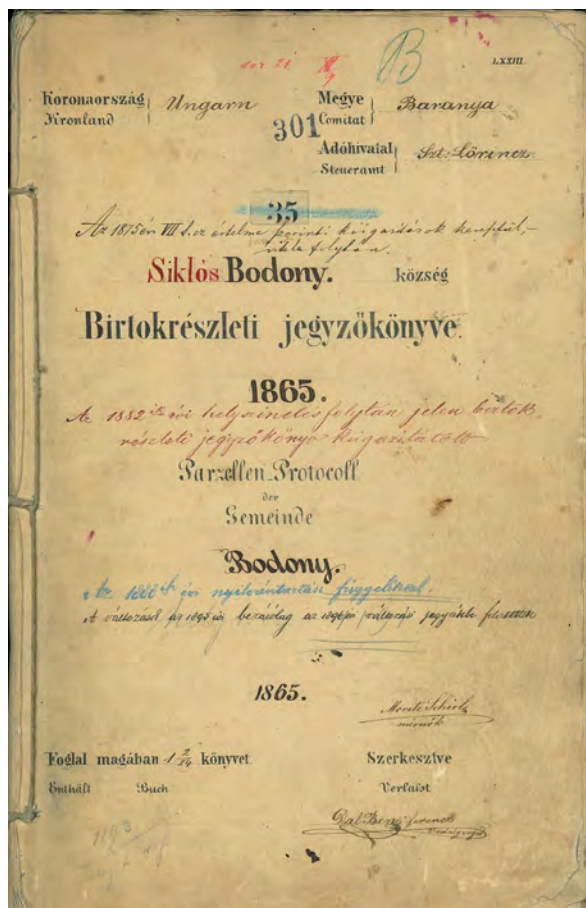 B
LXXIII.
Koronaország Ungarn Megye Baranya
Kronland Comitat
301
Adóhivatal Szt: Lörincz
Steueramt
35
Az 1875 évi VII t. cz értelme szerinti kiigazítások keresztül-
vitele folytán.
Siklós Bodony. község
Birtokrészleti jegyzőkönyve.
1865.
Az 1882 ik évi helyszinelés folytán jelen birtok-
részleti jegyzőkönyv kiigazítatott
Parzellen-Protocoll
der
Gemeinde
Bodony.
Az 1888 ik évi nyilvántartási függelékkel.
A változások az 1895 évi bezárólag az
1865.
Moritz
mérnök
Foglal magában 1 2/24 könyvet Szerkesztve
Enthält Buch Verfasst
ferencz